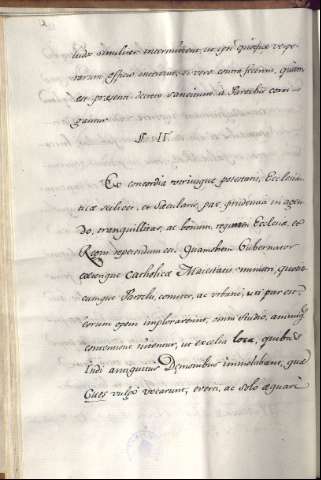 ludo similiter intermittent, ut ipsi quoque vespe-
rarum officio intersint; si vero contra fecerint, quam
est præsenti decreto sancitum à Parochis corri-
gantur.
§. II.
Ex concordia utriusque potestatis, Ecclesias-
ticæ scilicet, et Sæcularis, pax, prudentia in agen-
do, tranquillitas, ac bonum, regimen Ecclesiæ, et
Regni repetendum est. Quamobrem Gubernator
cæterique Catholicæ Maiestatis ministri, quoti-
cumque Parochi, comiter, ac urbanè, uti par est,
eorum opem implorarint, omni studio, animique
contentione nitentur, ut excelsa loca, quibus
Indi antiquitus Demonibus immolabant, quæ
Cues vulgò vocarunt, everti, ac solo æquari